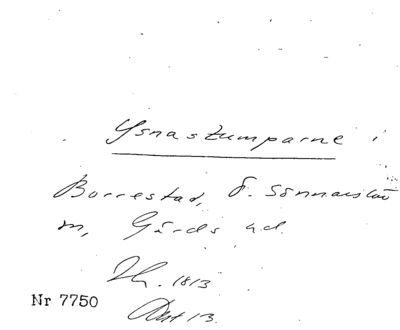 Ysnastumparne i
Borrestad, Ö. Sönnarslöv
sn, Gärds hd.
1813
Nr 7750
13.